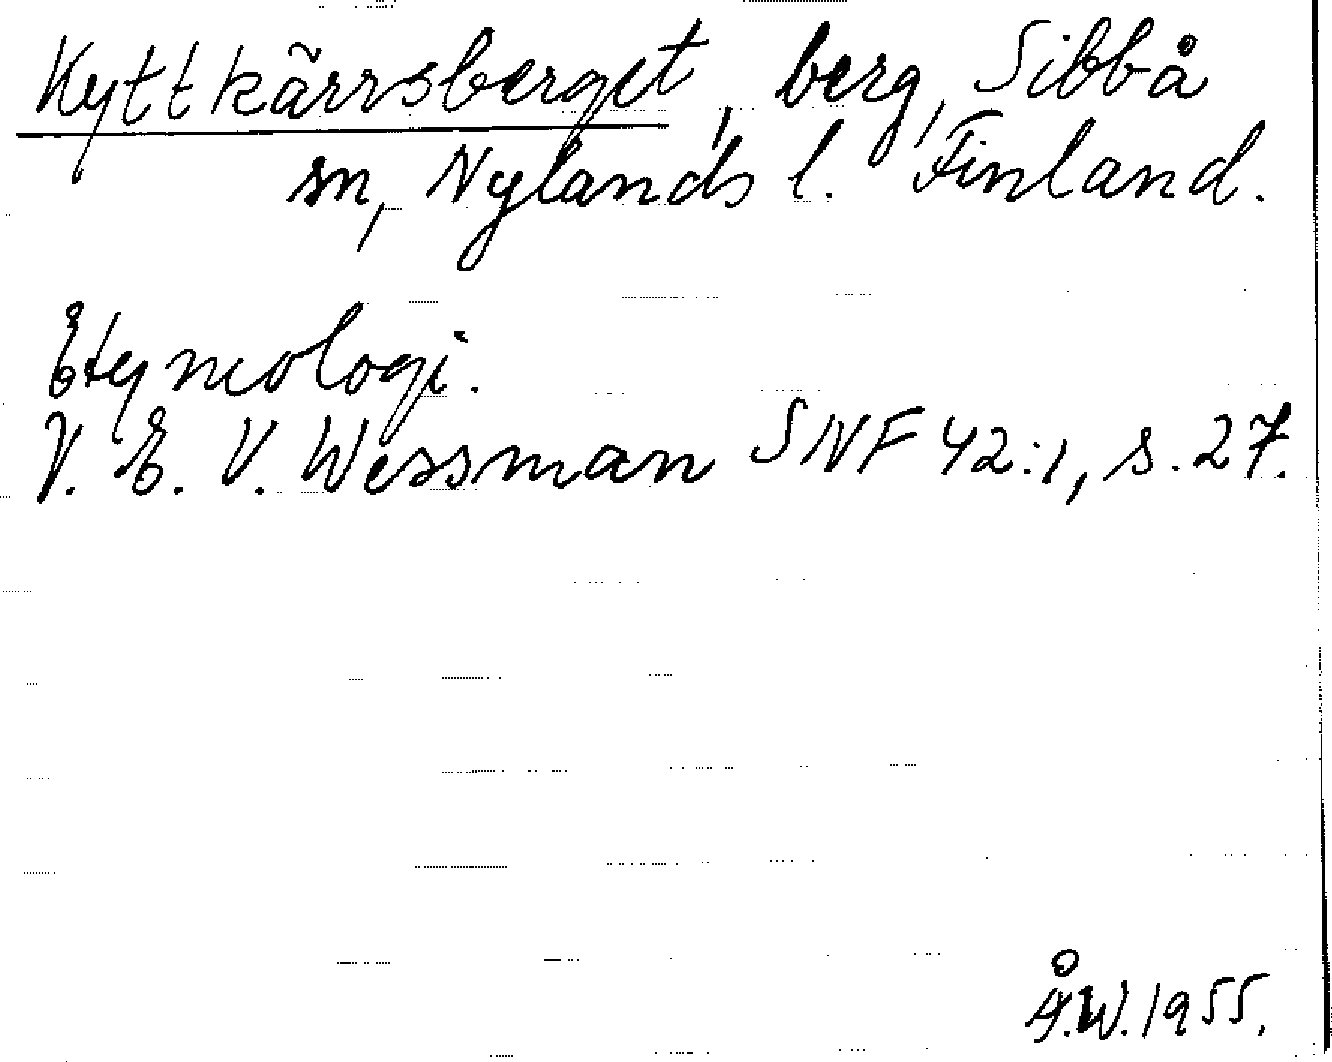 Kyttkärrsberget, berg, Sibbå
sn, Nylands l. Finland.
Etymologi.
V. E. V. Wessman SNF 42:1, s. 27.
Å.W. 1955.